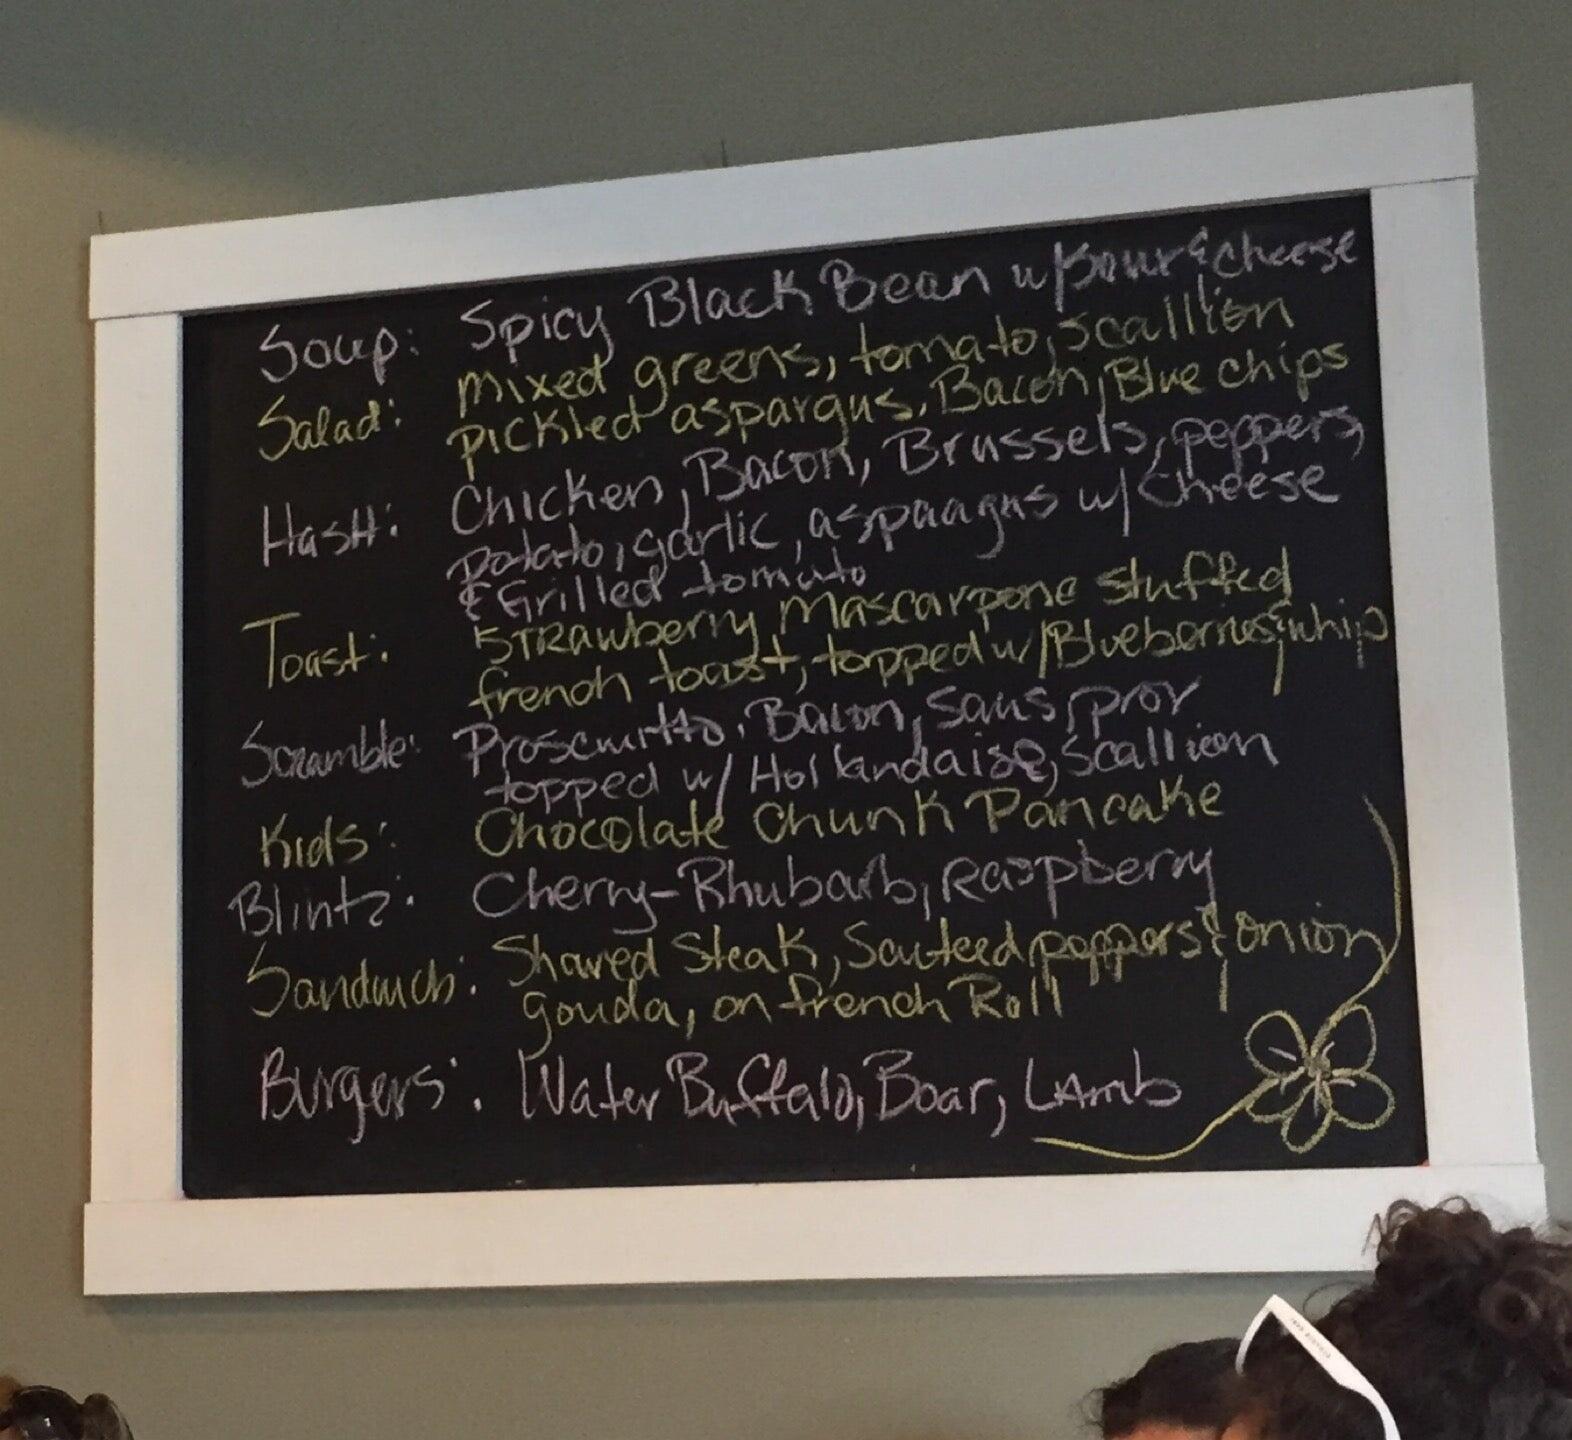 Soup: Spicy Black Bean w/ Sour & Cheese
Salad: mixed greens, tomato, scallion
pickled aspargus, Bacon, Blue chips
Hash: Chicken, Bacon, Brussels, peppers,
potato, garlic, aspaagus w/ Cheese
& Grilled tomato
Toast: Strawberry Mascarpone stuffed
french toast, topped w/ Blueberries & whip
Scramble: Proscuitto, Bacon, saus, prov
topped w/ Hollandaise, scallion
Kids: Chocolate Chunk Pancake
Blintz: Cherry-Rhubarb, Raspberry
Sandwich: Shaved Steak, Sauteed peppers & onion
gouda, on french Roll
Burgers: Water Buffalo, Boar, Lamb